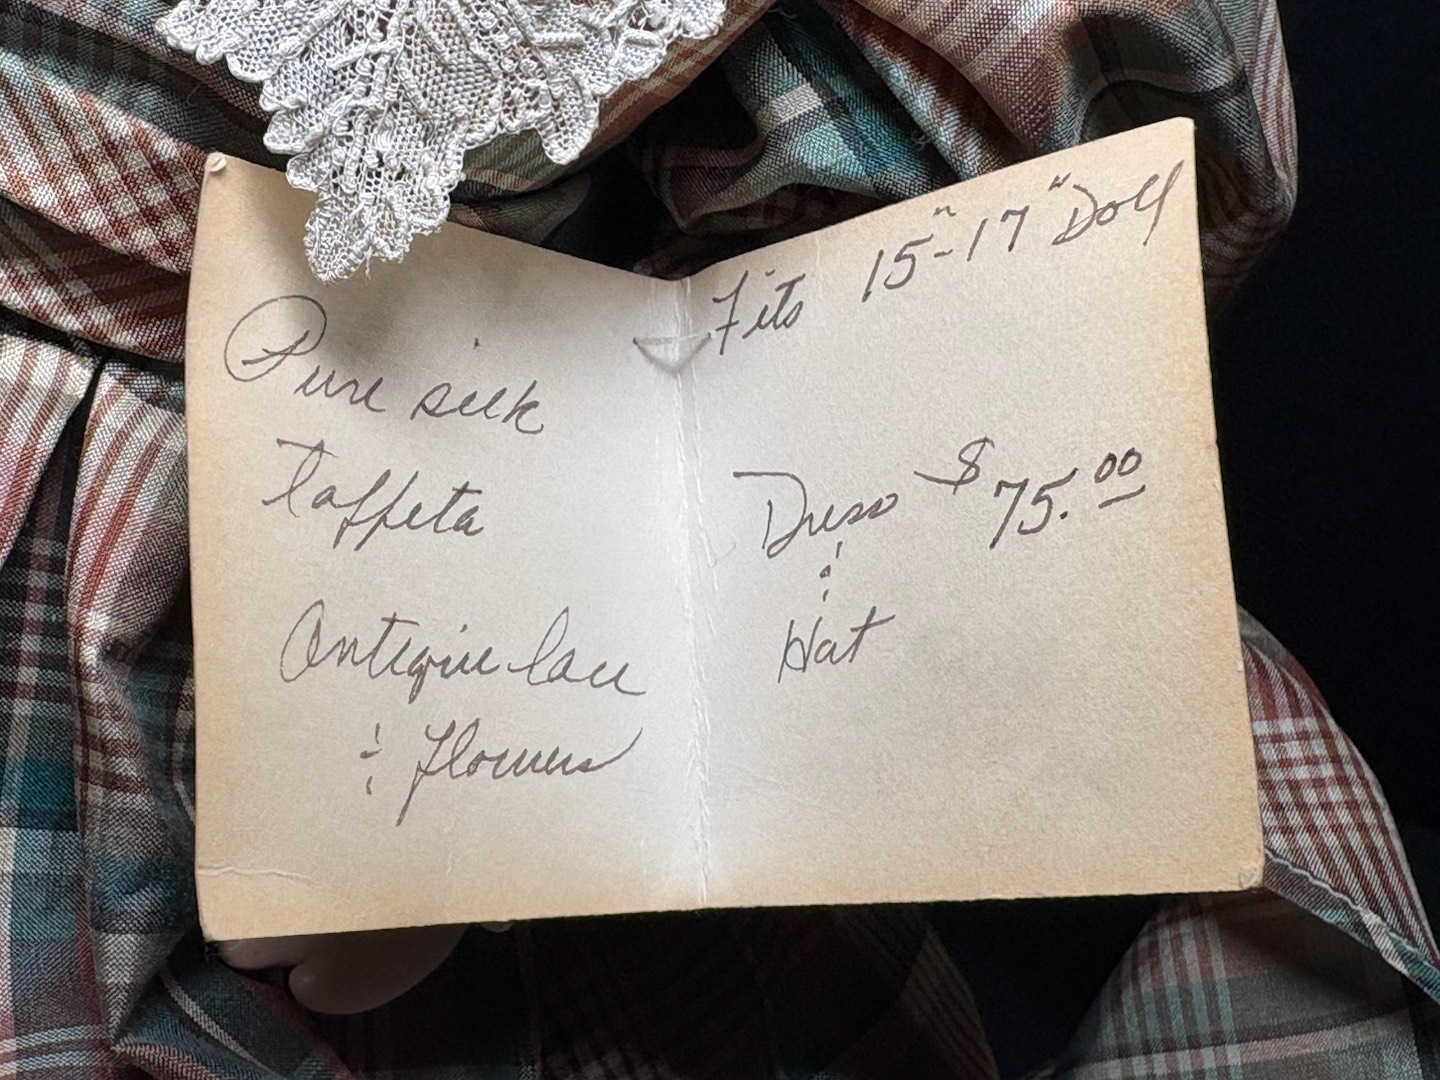 Pure silk
taffeta
Antique lace
& flowers
Fits 15"-17" Doll
Dress $75.00
&
Hat